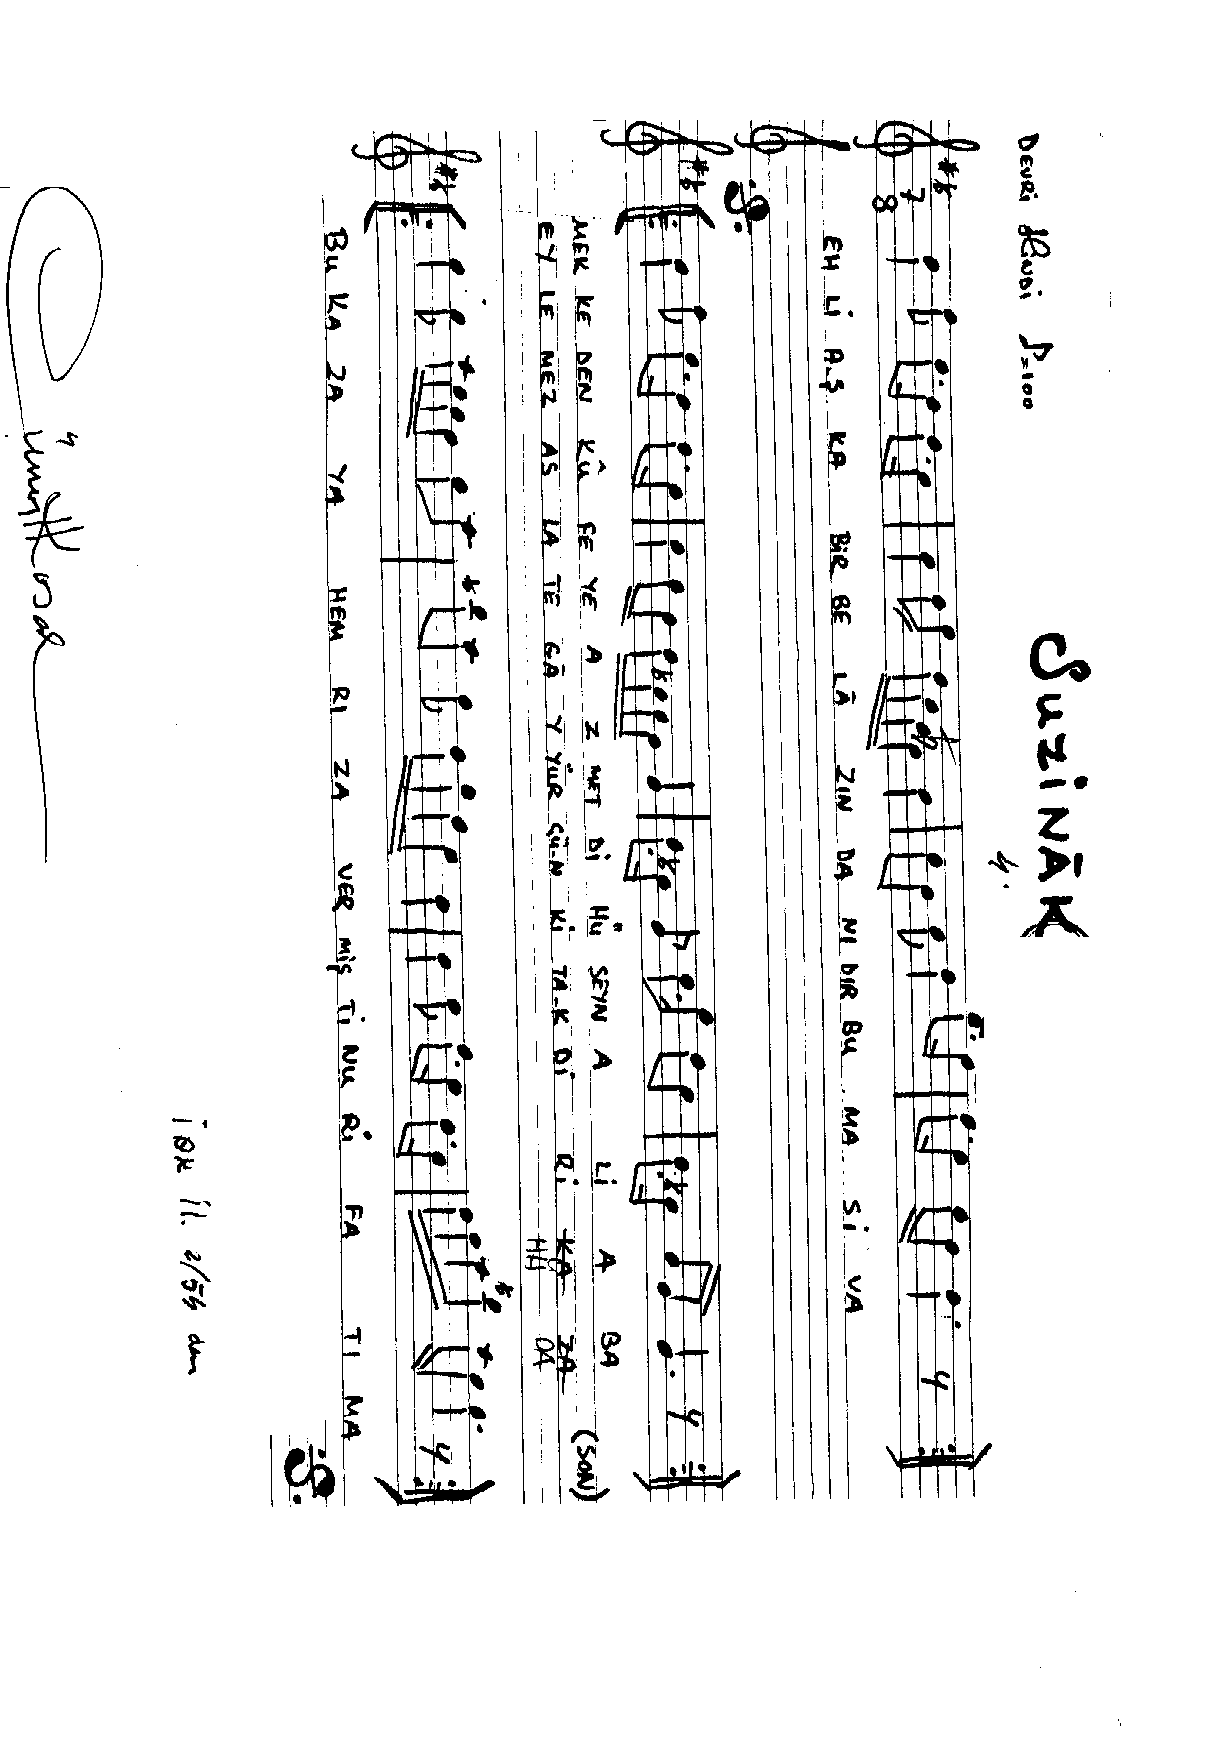 SUZİNÂK
DEVRi HiNDi ♪=100
7
8
EH Lİ A.Ş KA BİR BE LÂ ZIN DA NI DIR BU MA Sİ VA
MEK KE DEN KÛ FE YE A Z MET Dİ HÜ SEYN A Lİ A BA
(SON)
EY LE MEZ AS LA TE GÂ Y YÜR ÇÜ-N Kİ TA-K Dİ Rİ KA ZA
HÜ DA
BU KA ZA YA HEM RI ZA VER MİŞ Tİ NU Rİ FA TI MA